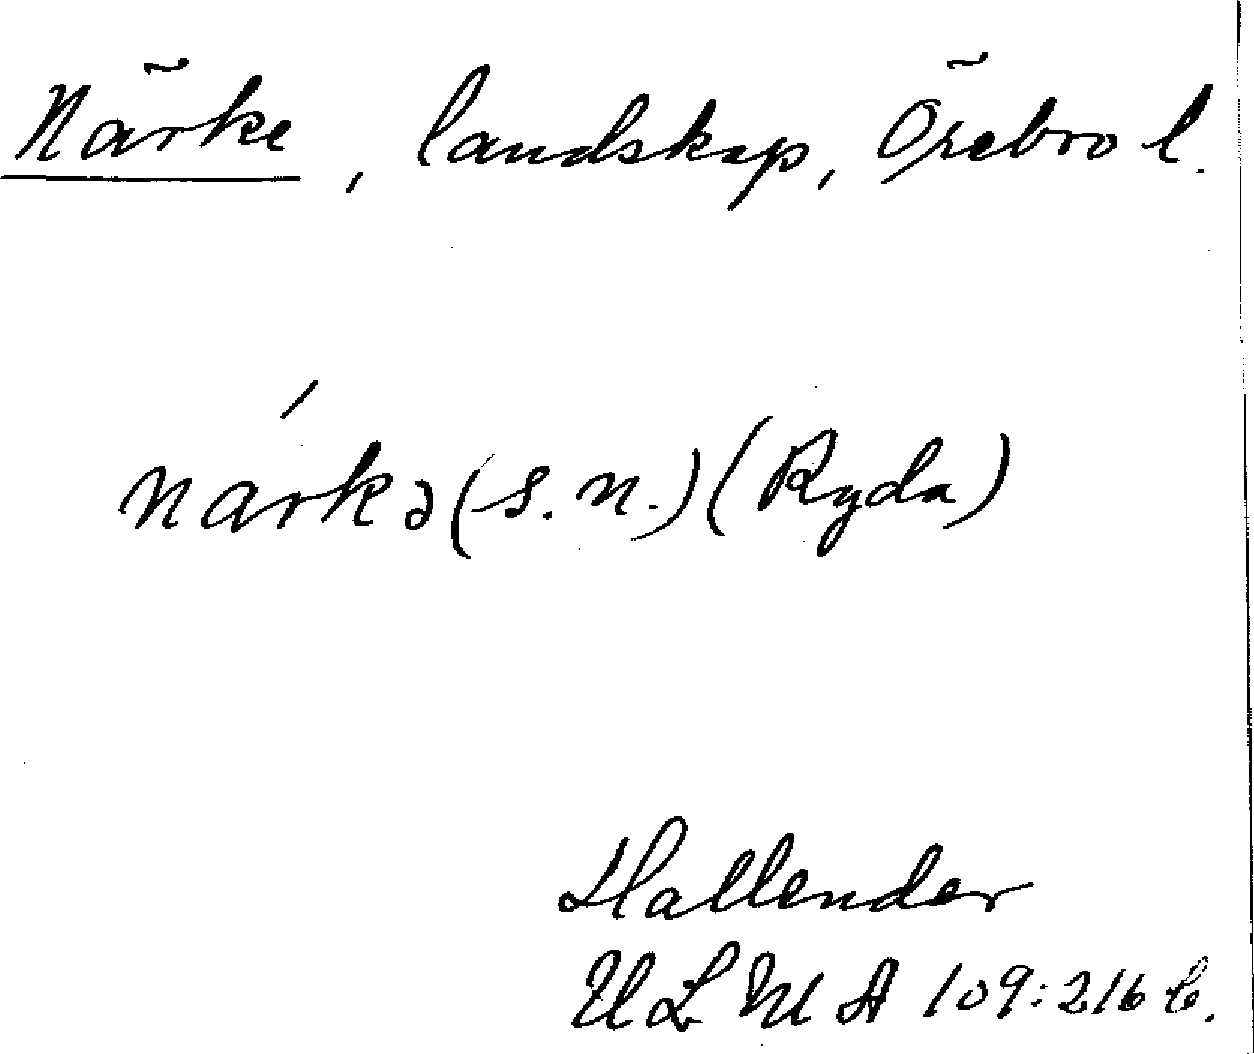 Närke, landskap, Örebro l.
nárkə (s. n.) (Ryda)
Hallender
ULMA 109:216 b.